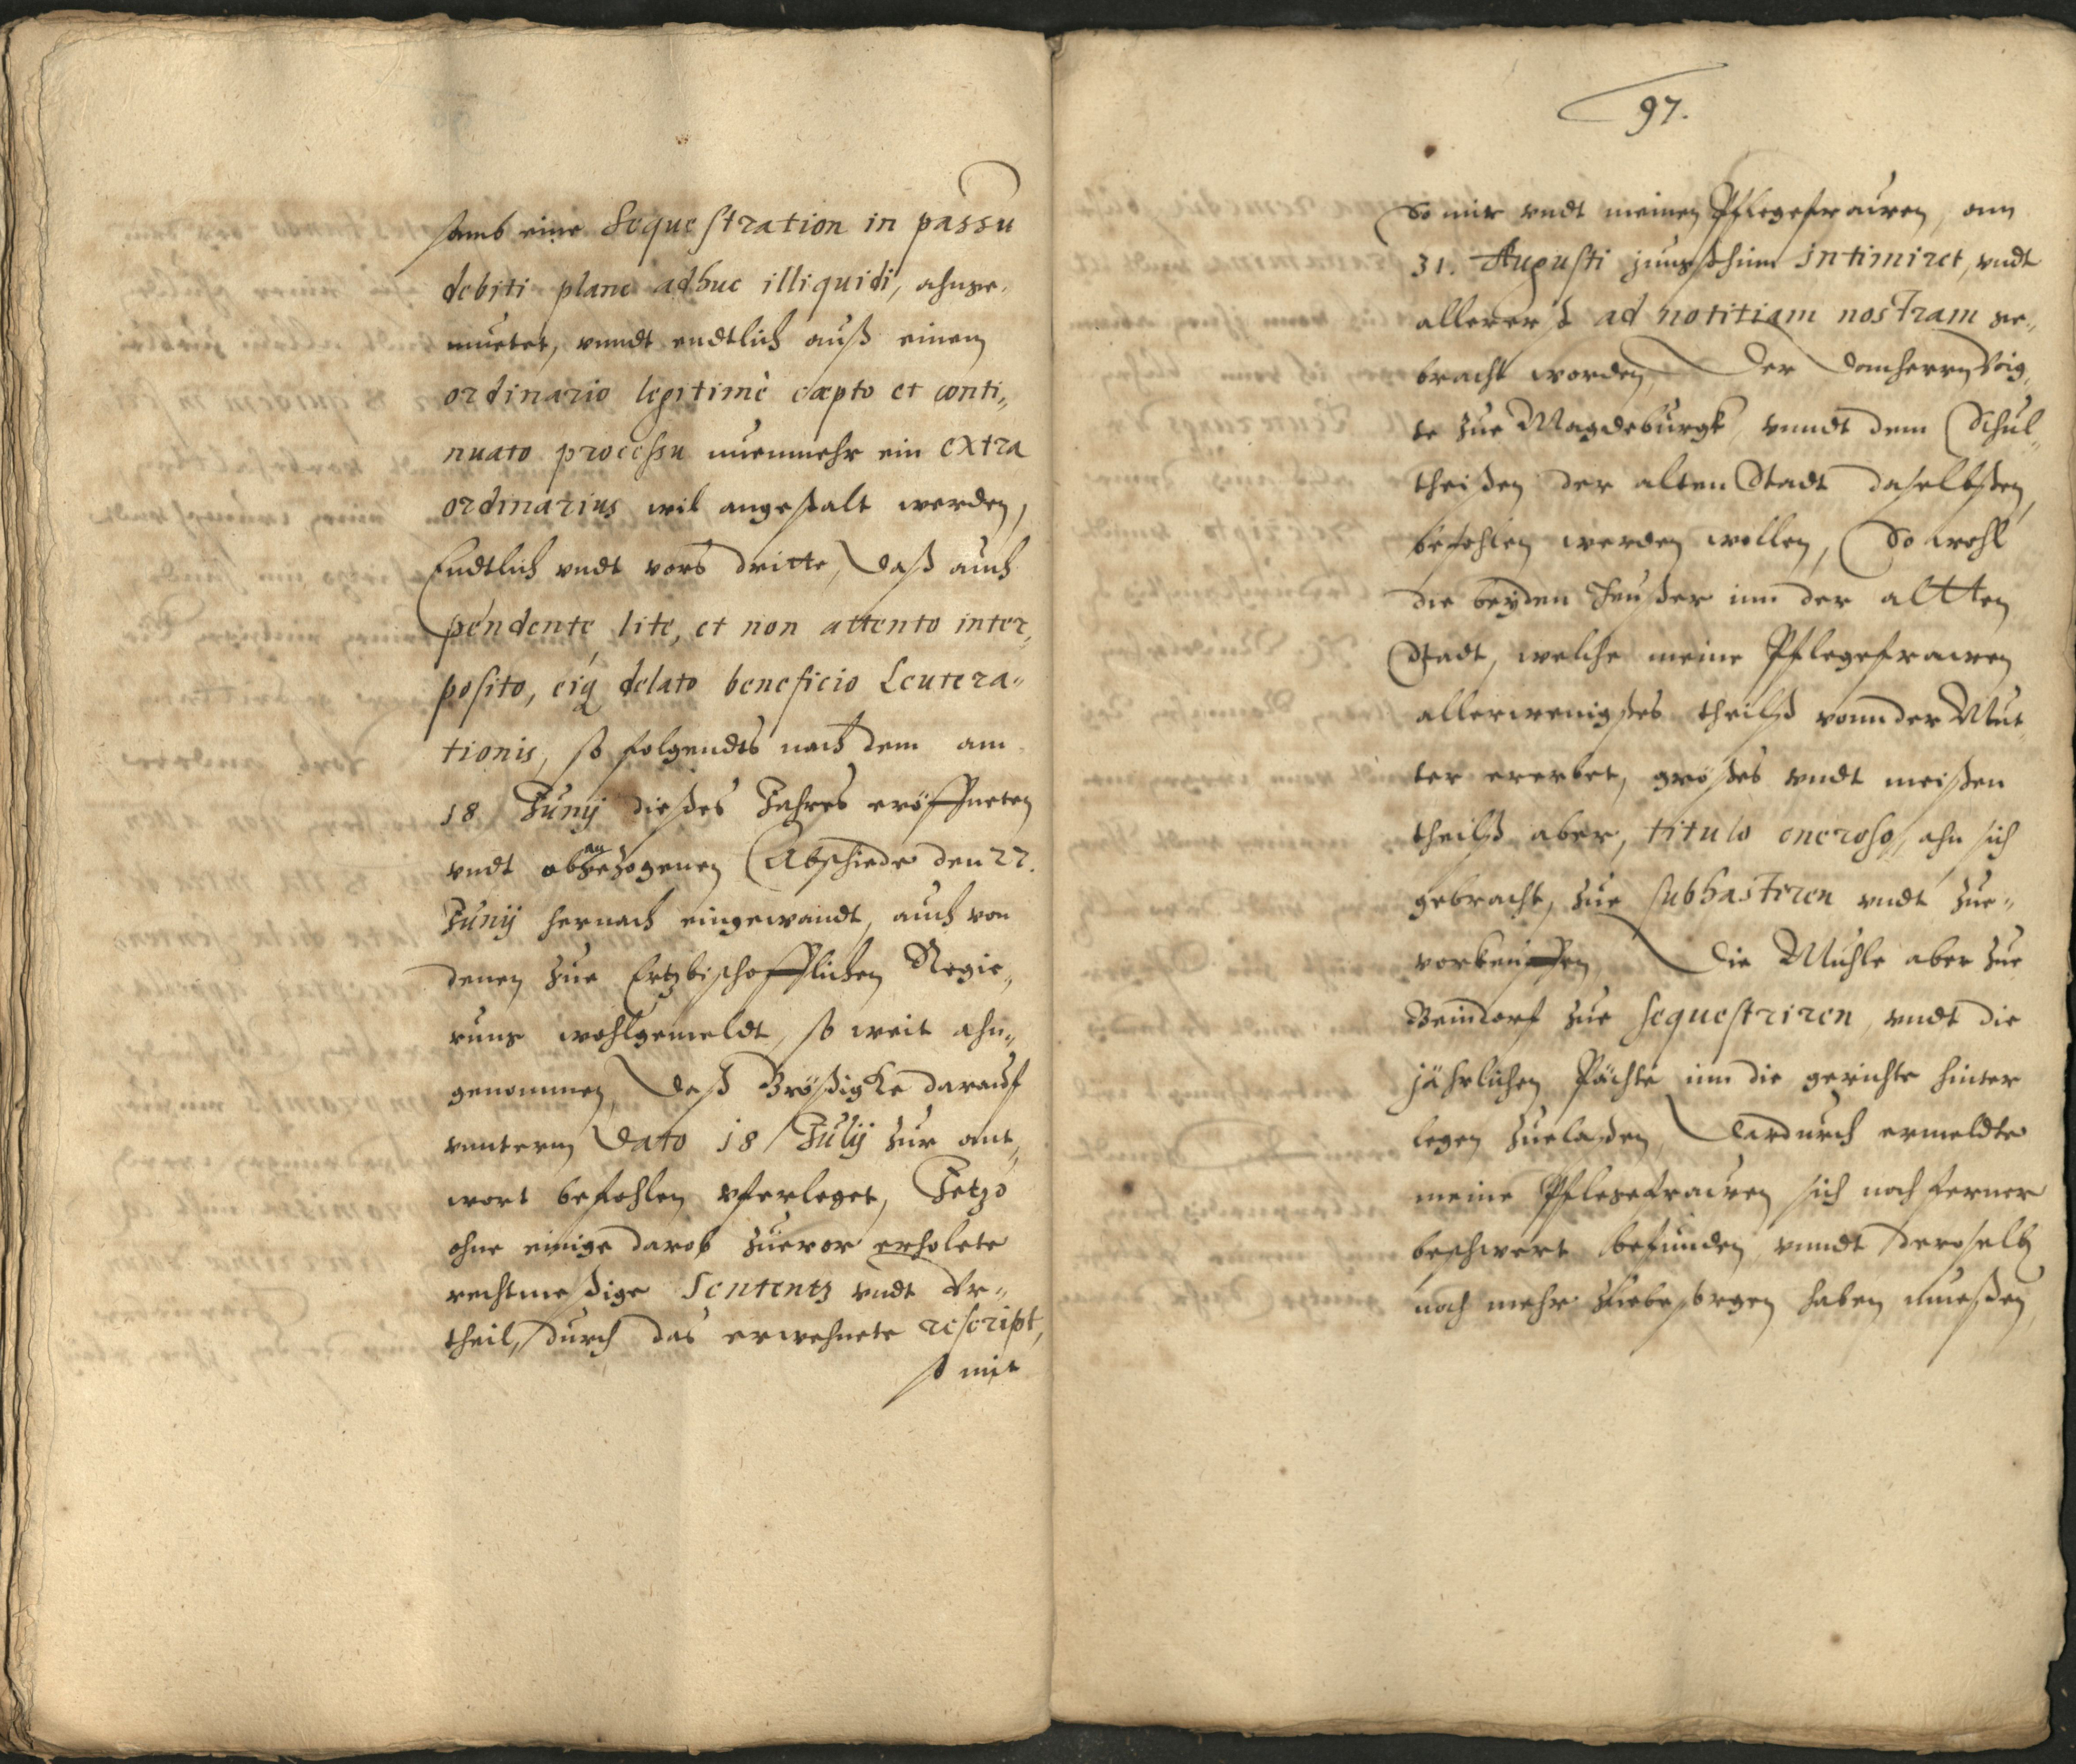 samb eine Sequestration in passu
debiti plane adhuc illiquidi, ahnge„
muetet, vnndt endtlich auß einem
ordinario legitimè cæpto et conti„
nuato processu nuenmehr ein extra
ordinarius wil angestalt werden,
Endtlich vndt vors dritte, daß auch
pendente lite, et non attento inter„
posito, eiq delato beneficio Leutera„
tionis, so folgendts nach dem am
18 Junij dießes Jahres eröffneten
vndt obangezogenen Abschiede den 27.
Junij hernach eingewandt, auch von
denen zue Ertzbischofflichen Regie„
rung wohlgemeldt, so weit ahn„
genommen, daß Brößigke darauf
vnnterm dato 18 Julij zur ant„
wort befohlen vferleget, Jetzo
ohne einige darob zueror erholete
rechtmeßige Sententz vndt Vr„
theil, durch das erwehnete rescript,
so mir
97.
So mir vndt meinen Pflegefrauwen, am
31. Augusti jungsthin intimiret, vndt
allererst ad notitiam nostram ge„
bracht worden, Der Domherrn Voig„
te zue Magdeburgk vnndt dem Schul„
theißen der alten Stadt daselbsten,
befohlen werden wollen, So wohl
die beyden Heußer inn der altten
Stadt, welche meine Pflegefrawen
allerwenigstes theilß vonn der Mut„
ter ererbet, größtes vndt meisten
theilß aber, titulo oneroso, ahn sich
gebracht, zue subhastiren vndt zue„
vorkeuffen, Die Muhle aber zue
Beindorf zue sequestriren, vndt die
jährlichen Pächte inn die gerichte hinter
legen zuelaßen, Dardurch ermeldte
meine Pflegefrauwen sich noch ferner
beschwert befunden, vnndt deroselb
noch mehr zuebesorgen haben mueßen,